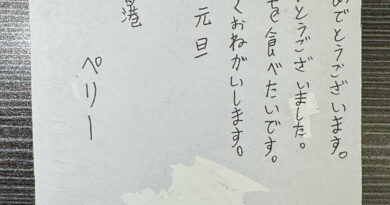 めでとうございます。
とうございました。
を食べたいです。
くおねがいします。
元旦
港
ペリー